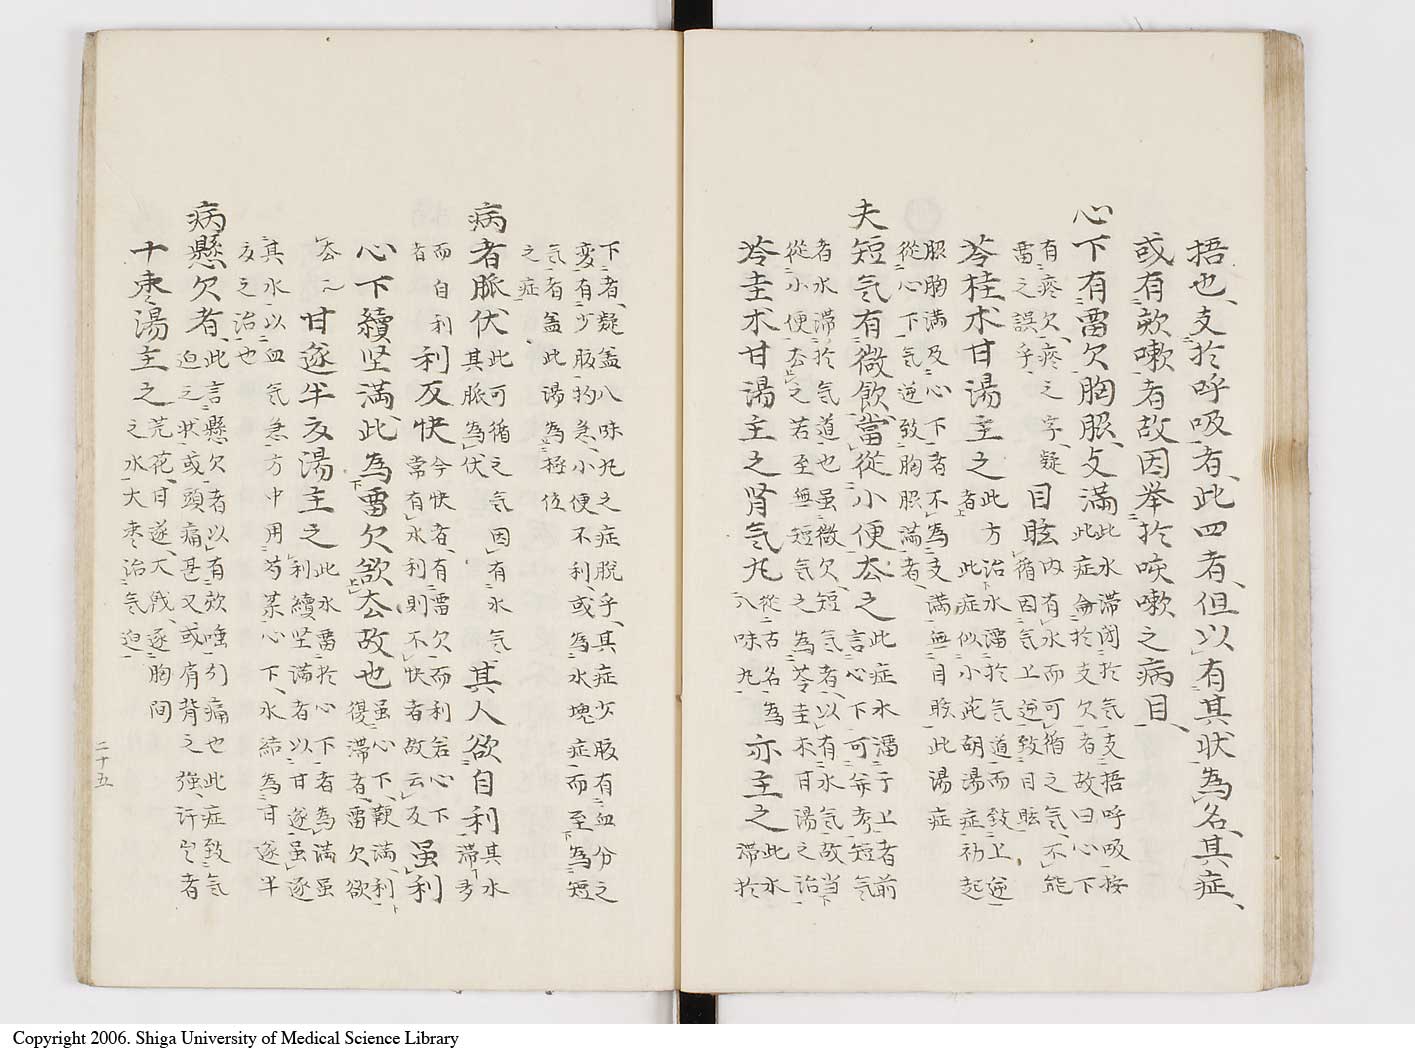 捂也、支於呼吸者、此四者、但以有其状為名、其症、
或有欬嗽者故因挙於咳嗽之病目、
心下有畱欠胸脇攴満此水滞閉於気支捂呼吸按
此症侖於支欠者故曰心下
有痰欠、痰之字、疑
畱之誤乎、
目眩内有水而可循之気、不能
循因気上逆致目眩
苓桂朮甘湯主之此方治水畱於気道而致上逆
者此症似小此胡湯症初起
脹胸満及心下者不為支満無目眩此湯症
從心下気逆致胸脇満者、
夫短気有微飲、當從小便去之此症水畱于上者前
言心下可并考短気
者水滞於気道也虽微欠、短気者、以有水気故当
從小便去之若至無短気之為苓圭朮甘湯之治
苓圭朮甘湯主之腎気丸從古名為
八味丸
亦主之此水
滞於
下者、疑盖八味丸之症脱乎、其症少腹有血分之
変有少腹拘急、小便不利、或為水塊症而至為短
気者盖此湯為極位
之症
病者脈伏、此可循之気因有水気
其脈為伏
其人欲自利其水
滞多
而自利
者
利反快今快者、有畱欠而利若心下
常有水利、則不快者故云反
虽利
心下續坚満、此為畱欠欲去故也虽心下、鞕満、利
復滞者、畱欠欲
去甘遂半夏湯主之此水畱於心下者為満虽
利續坚満者以甘遂虽逐
其水以血気急方中用芍菜心下、水結為甘遂半
夏之治也
病懸欠者、此言懸欠者以有欬唾引痛也此症致気
迫之状或頭痛甚又或肩背之強、許者
十枣湯主之芫花、甘遂、大戟、逐胸间
之水大枣治気迫
二十五
Copyright 2006. Shiga University of Medical Science Library